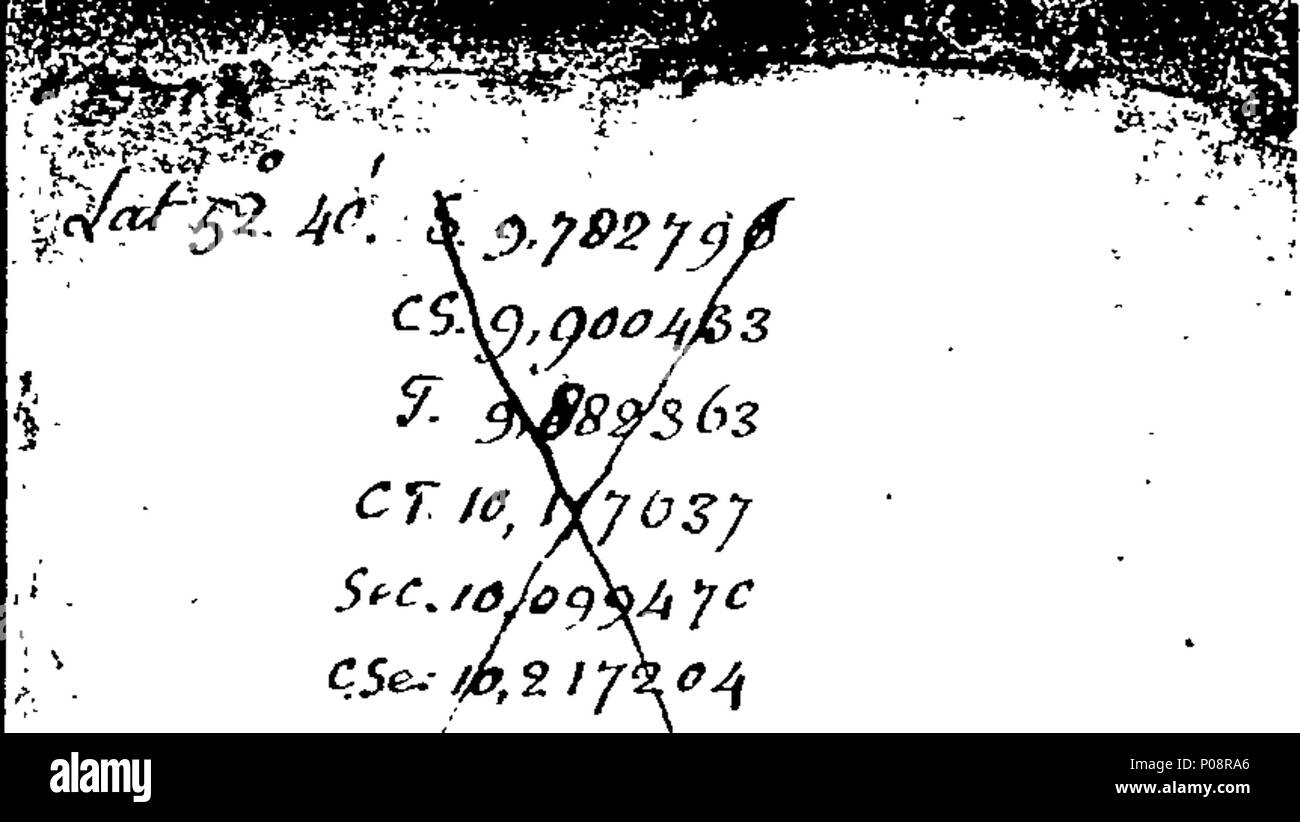 Lat 52°. 40'. S. 9.782796
CS. 9,900433
T. 9,882363
CT. 10,117637
Sec. 10,099470
C.Se: 10,217204
alamy
Image ID: P08RA6
www.alamy.com